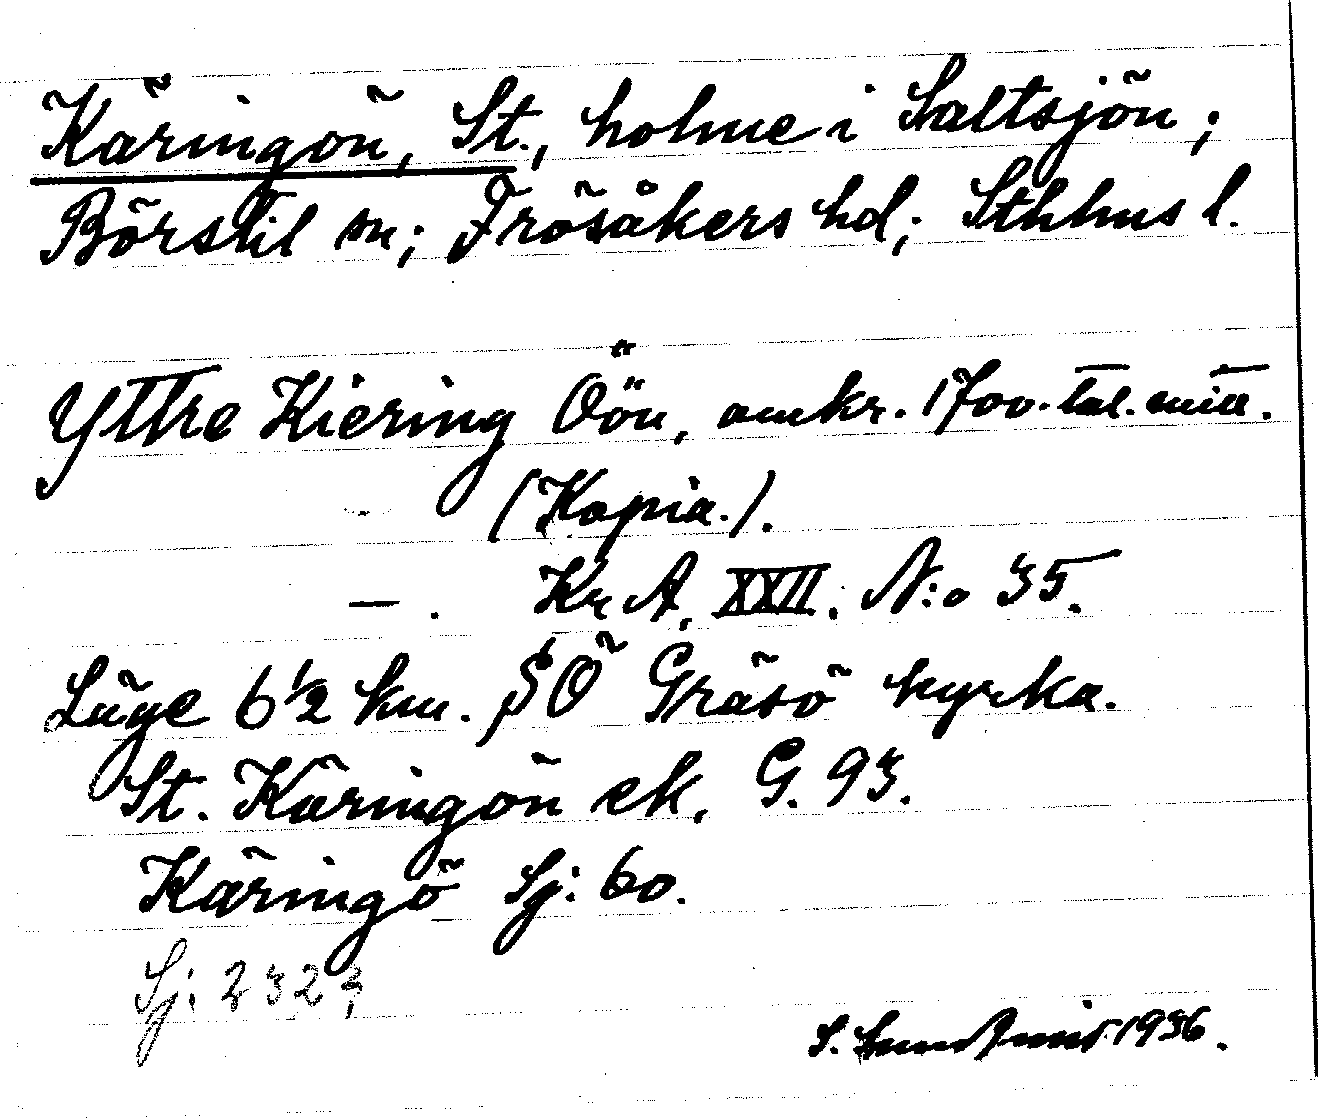 Käringön, St., holme i Saltsjön;
Börstil sn; Frösåkers hd; Sthlms l.
Yttre Kiering Öön, omkr. 1700-tal. mitt.
(Kopia.).
— . Kr A. XXII. N:o 35.
Läge 6 1/2 km. SÖ Gräsö kyrka.
St. Käringön ek. G. 93.
Käringö Sj: 60.
Sj: 2323
S. Sundquist 1936.